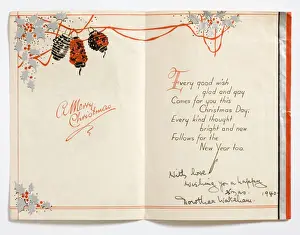 A Merry
Christmas
Every good wish
glad and gay
Comes for you this
Christmas Day;
Every kind thought
bright and new
Follows for the
New Year too.
With love
wishing you a happy
Xmas 1940
Dorothea